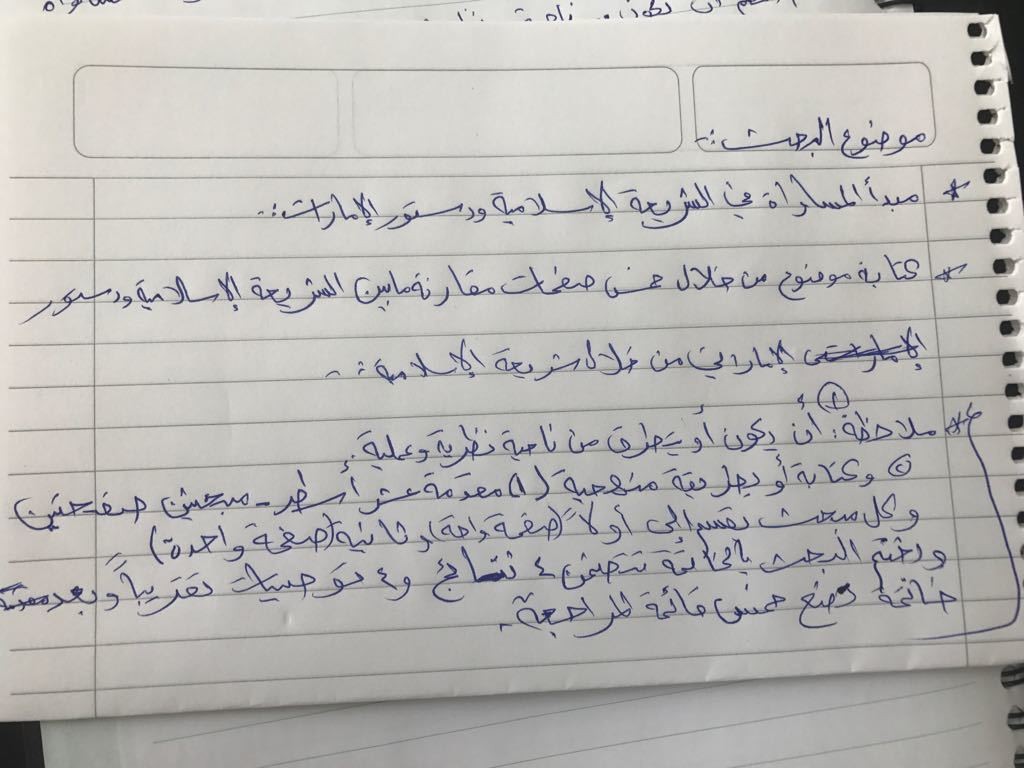 موضوع البحث :-
* مبدأ المساواة في الشريعة الإسلامية ودستور الإمارات :-
* كتابة موضوع من خلال خمس صفحات مقارنة مابين الشريعة الإسلامية ودستور
الإماراتي من خلال شريعة الإسلامية :-
* ملاحظة : ① أن يكون أو يتطرق من ناحية نظرية وعملية .
② وكتابة أو بطريقة منهجية (١) مقدمة عشر أسطر - مبحثين صفحتين
وكل مبحث نقسم إلى أولاً (صفحة واحة) وثانية (صفحة واحدة)
ونختم البحث بالخاتمة تتضمن ٤ نتائج و ٤ توصيات تقريباً وبعد
خاتمة نضع خمس قائمة المراجعة .